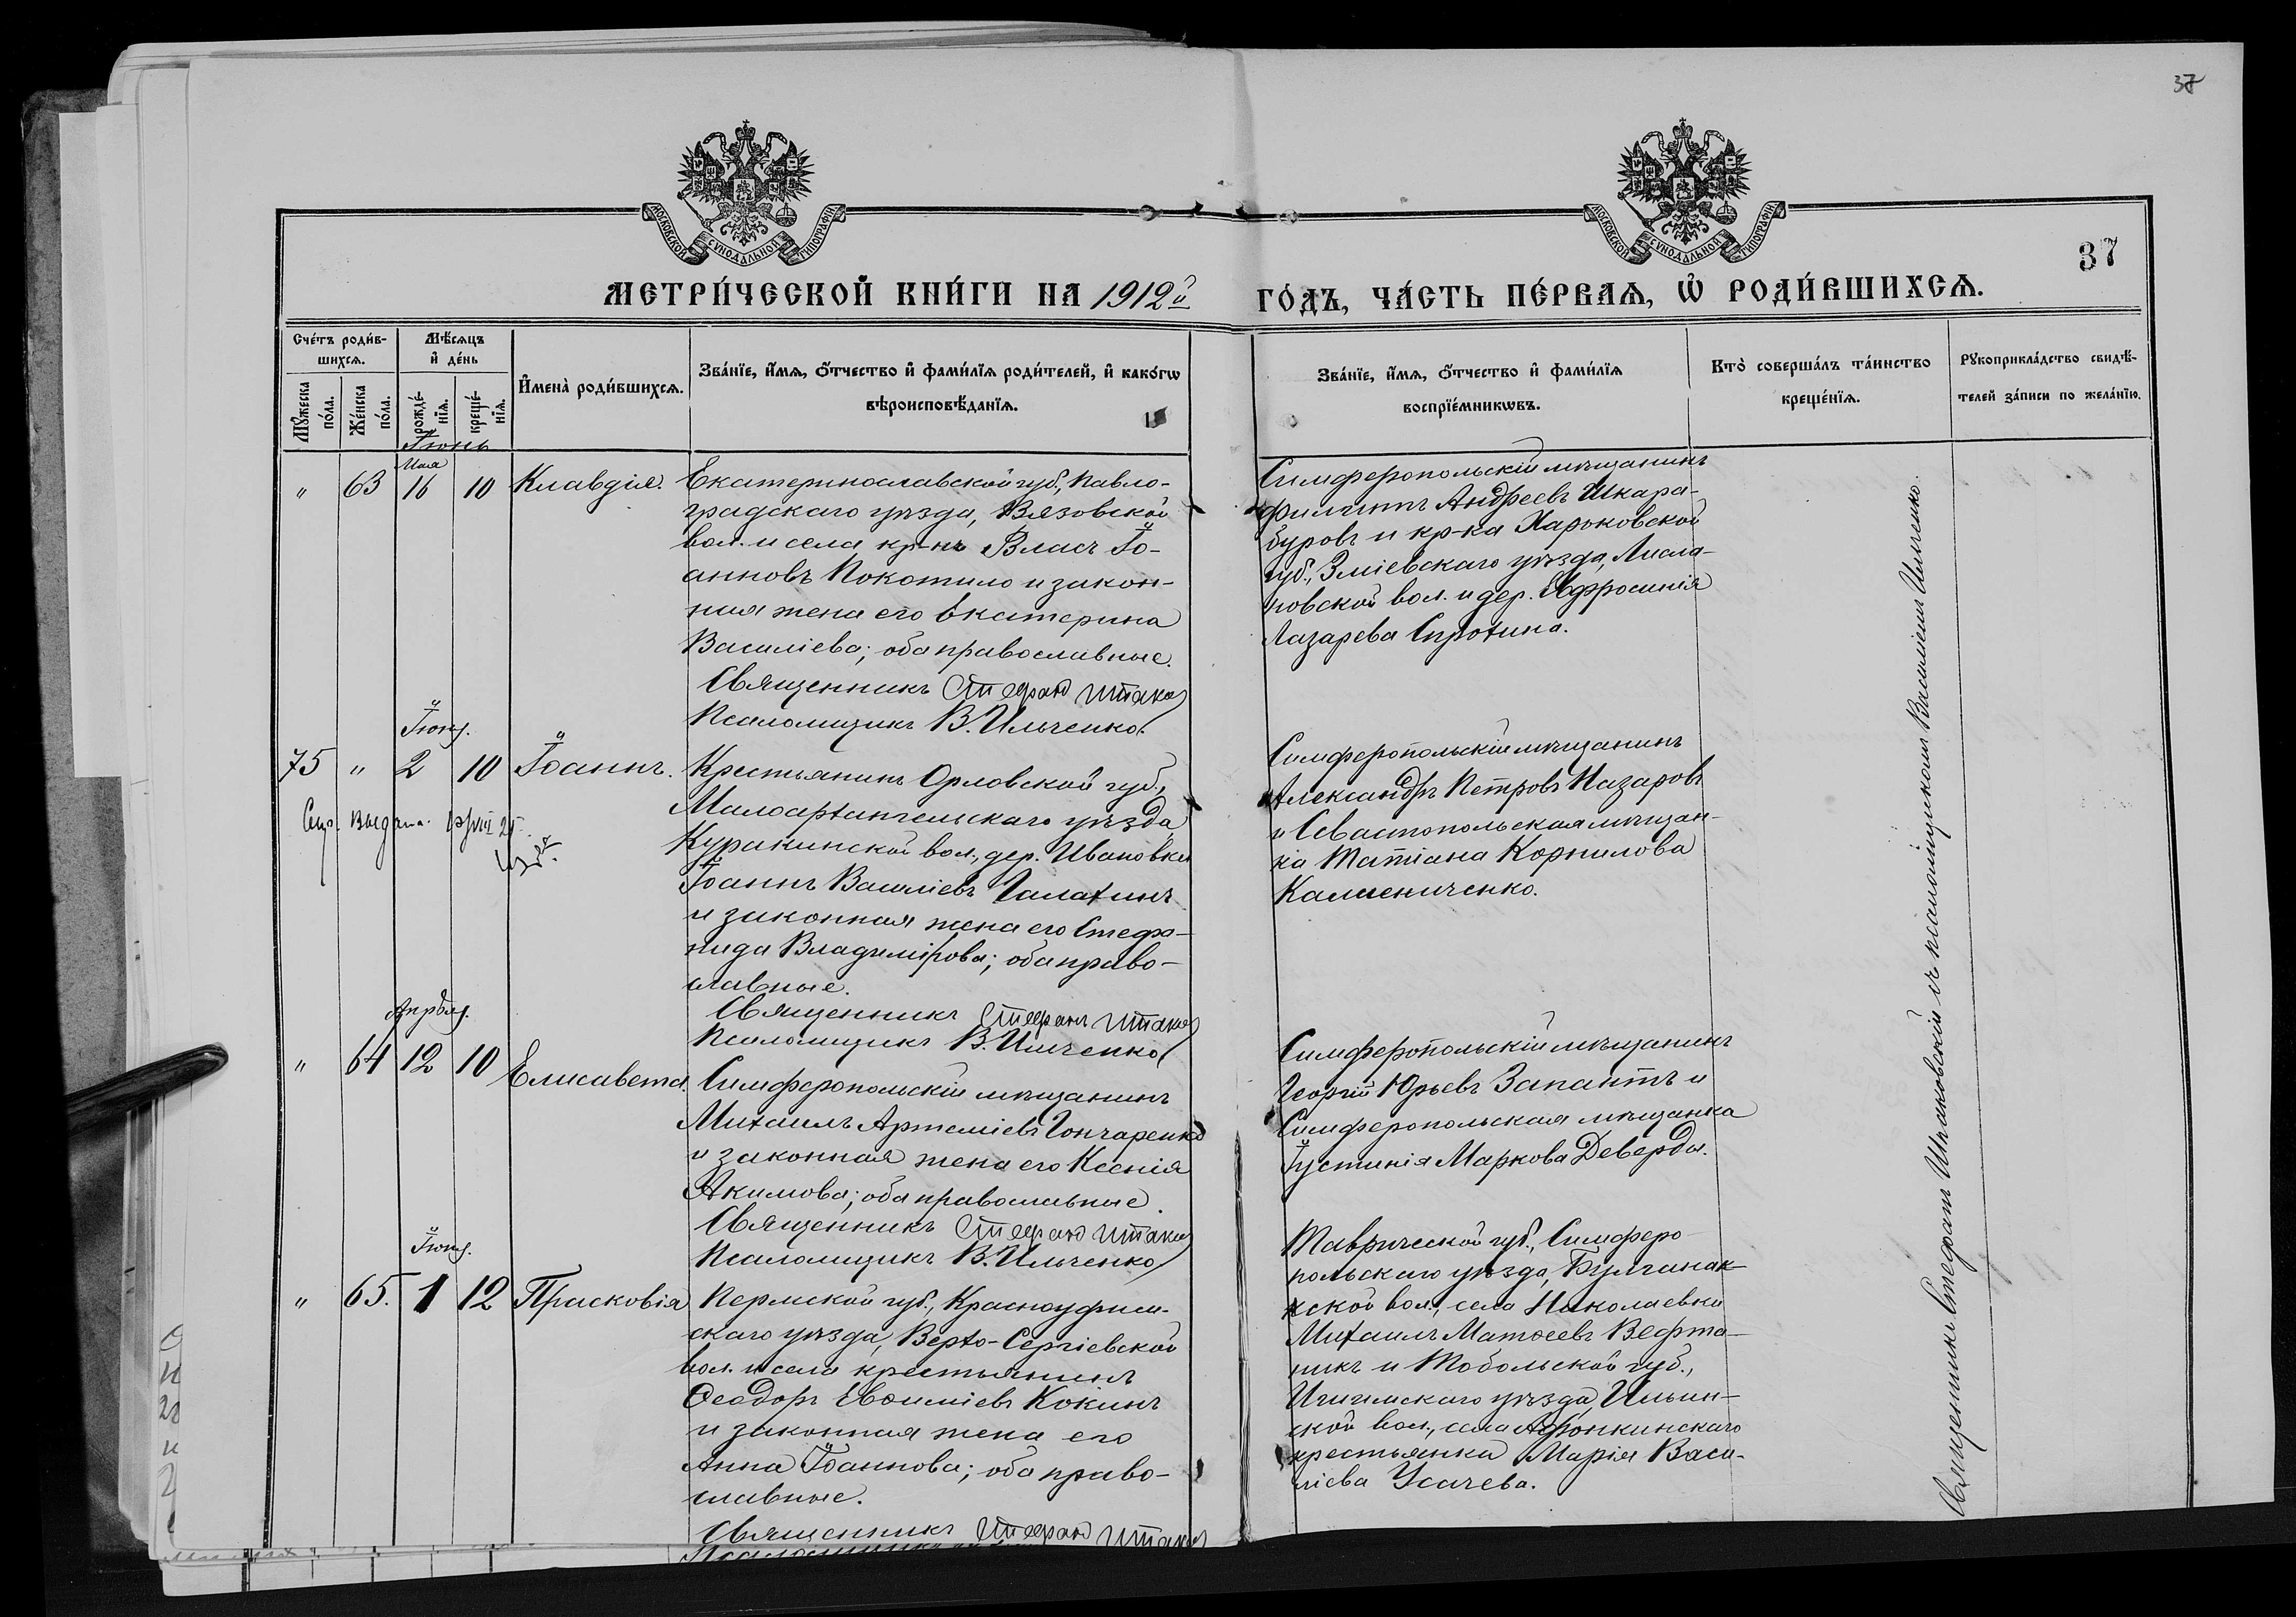 37
МОСКОВСКОЙ СѴНОДАЛЬНОЙ ТИПОГРАФІИ
МОСКОВСКОЙ СѴНОДАЛЬНОЙ ТИПОГРАФІИ
37
МЕТРИ́ЧЕСКОЙ КНИ́ГИ НА 1912й ГО́ДЪ, ЧА́СТЬ ПЕ́РВАѦ, Ѽ РОДИ́ВШИХСѦ.
Сче́тъ роди́в-
шихсѧ.
Мꙋ́жеска по́ла.
Же́нска по́ла.
Мѣ́сѧцъ
и҆ де́нь
рожде́-
нїѧ.
креще́-
нїѧ.
И҆мена̀ роди́вшихсѧ.
Зва́нїе, и҆́мѧ, ѻ҆́тчество и҆ фами́лїѧ роди́телей, и҆ како́гѡ
вѣроисповѣ́данїѧ.
Зва́нїе, и҆́мѧ, ѻ҆́тчество и҆ фами́лїѧ
воспрїе́мникѡвъ.
Кто̀ соверша́лъ та́инство
креще́нїѧ.
Рꙋкоприкла́дство свидѣ́-
телей за́писи по жела́нїю.
Іюнь
Мая
" 63 16 10 Клавдія.
Екатеринославской губ., Павло-
градскаго уѣзда, Вязовской
вол. и села кр-нъ Власъ Іо-
анновъ Покотило и закон-
ная жена его Екатерина
Василіева; оба православные.
Священникъ Стефанъ
Псаломщикъ В. Ильченко
Симферопольскій мѣщанинъ
Андреевъ Шкара-
буровъ и кр-ка Харьковской
губ., Зміевскаго уѣзда,
новской вол. и дер. Евфросинія
Лазарева Спрохина.
Іюня.
75 " 2 10 Іоаннъ.
выдана.
Крестьянинъ Орловской губ.,
Малоархангельскаго уѣзда,
Куракинской вол., дер. Ивановки
Іоаннъ Василіевъ Галахинъ
и законная жена его Стефа-
нида Владимірова; оба право-
славные.
Священникъ Стефанъ
Псаломщикъ В. Ильченко
Симферопольскій мѣщанинъ
Александръ Петровъ Назаровъ
и Севастопольская мѣщан-
ка Татіана Корнилова
Калиениченко.
Апрѣля.
" 64 12 10 Елисавета.
Симферопольскій мѣщанинъ
Михаилъ Артеміевъ Гончаренко
и законная жена его Ксенія
Акимова; оба православные.
Священникъ Стефанъ
Псаломщикъ В. Ильченко
Симферопольскій мѣщанинъ
Георгій Юрьевъ Запантъ и
Симферопольская мѣщанка
Іустинія Маркова Деверда.
Іюня.
" 65. 1 12 Прасковія
Пермской губ., Красноуфим-
скаго уѣзда, Верхо-Сергіевской
вол. и села крестьянинъ
Ѳеодоръ Евѳиміевъ Кокинъ
и законная жена его
Анна Іоаннова; оба право-
славные.
Священникъ Стефанъ
Таврической губ., Симферо-
польскаго уѣзда, Булганак-
ской вол., села Николаевки
Михаилъ Матѳеевъ Вефта-
никъ и Тобольской губ.,
Ишимскаго уѣзда, Ильин-
ской вол., села Афонкинскаго
крестьянка Марія Васи-
ліева Усачева.
Священникъ Стефанъ съ псаломщикомъ Василіемъ Ильченко.